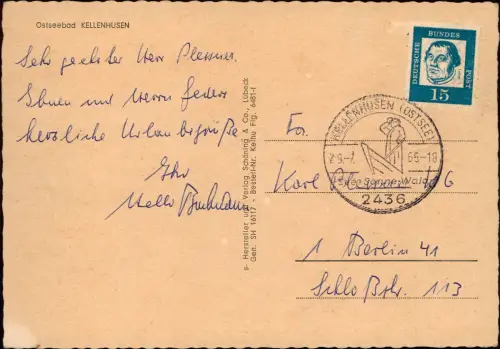 Ostseebad KELLENHUSEN
Sehr geehrter Herr Plessner.
Ihnen und Herrn Federn
herzliche Urlaubsgrüße
Ihr
s- Hersteller und Verlag Schöning & Co., Lübeck
Gen. SH 16117 - Bestell-Nr. Kelhu Flg. 6481-f
DEUTSCHE BUNDES POST
15
KELLENHUSEN (OSTSEE)
29.-7. 65-18
See Sonne Wald
2436
Fa.
Karl Plessner KG
1 Berlin 41
Schloßstr. 113